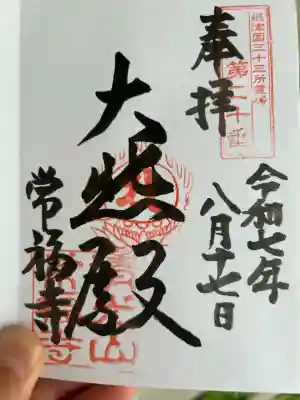 奉拝
摂津国三十三所霊場
第二十番
令和七年
八月十七日
大悲殿
常福寺